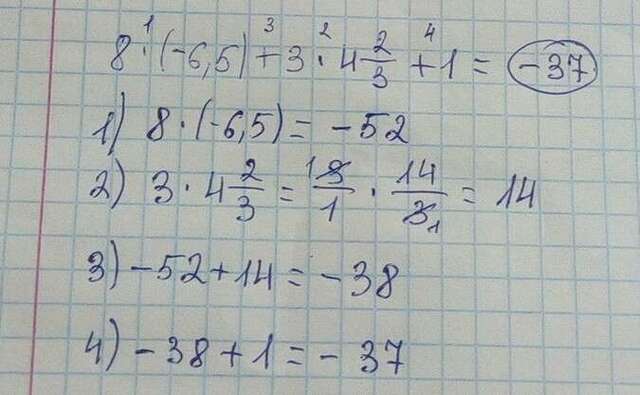 8 · (-6,5) + 3 · 4 2/3 + 1 = -37
1) 8 · (-6,5) = -52
2) 3 · 4 2/3 = 3/1 · 14/3 = 14
3) -52 + 14 = -38
4) -38 + 1 = -37